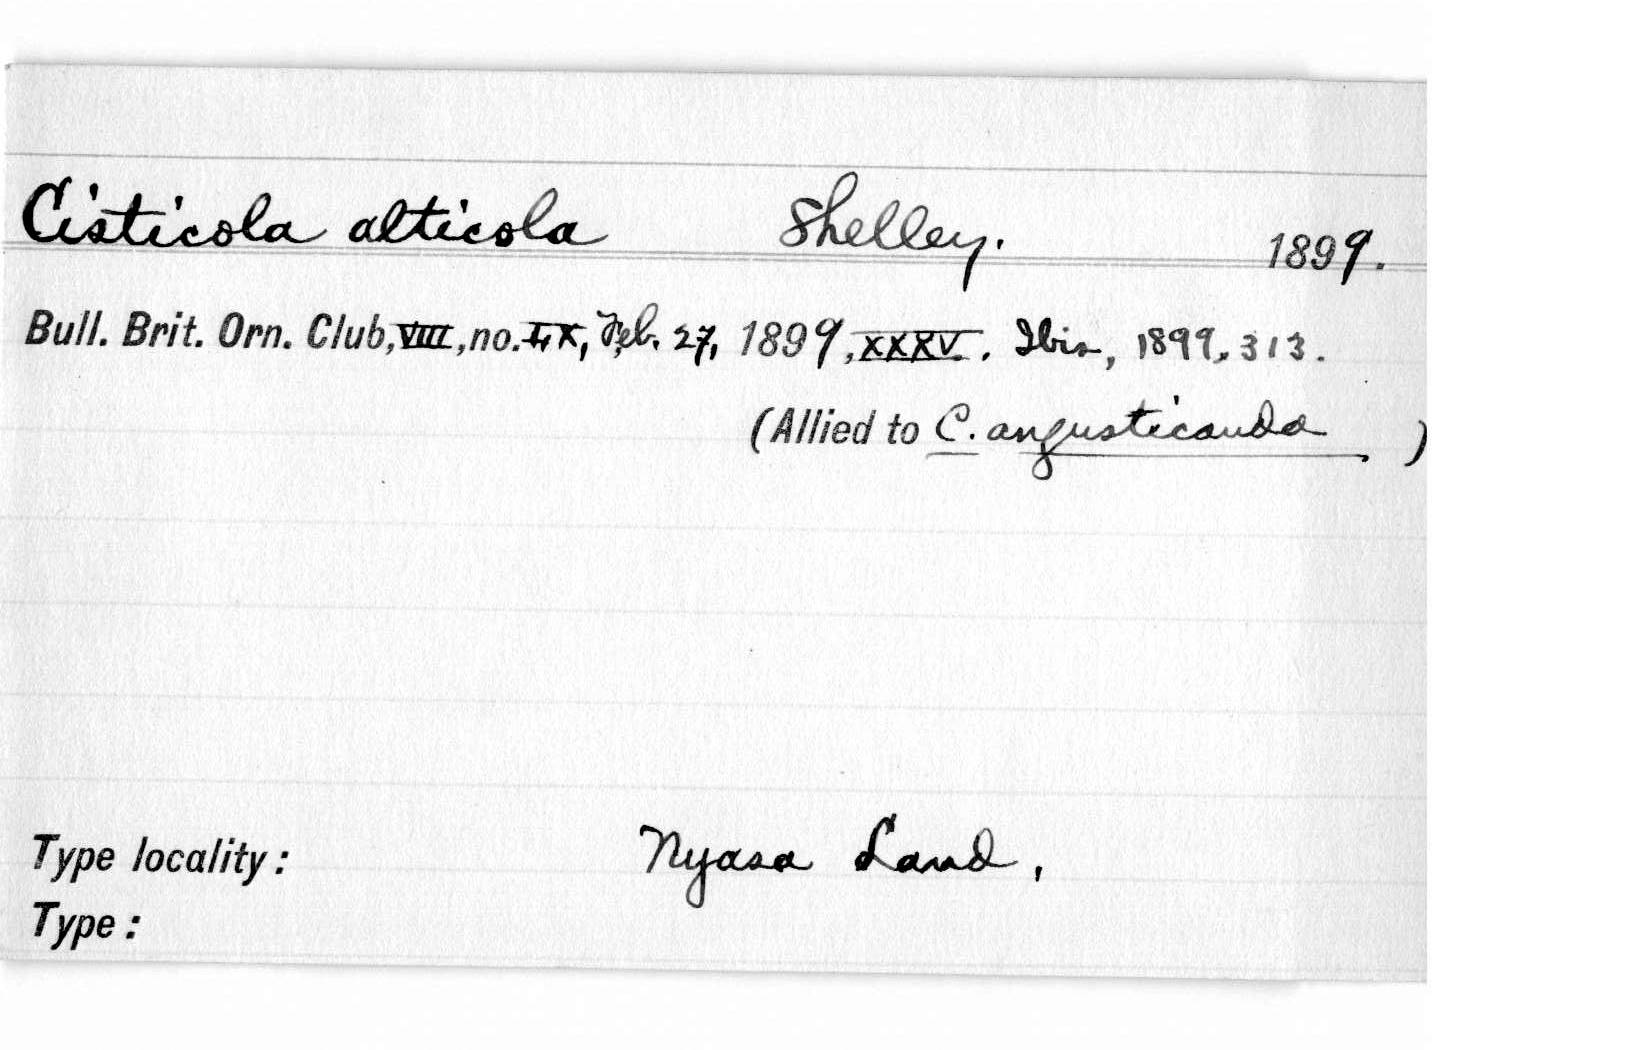 Cisticola alticola Shelley. 1899.
Bull. Brit. Orn. Club, VIII, no. LX, Feb. 27, 1899, XXXV. Ibis, 1899, 313.
(Allied to C. angusticauda )
Type locality: Nyasa Land,
Type: